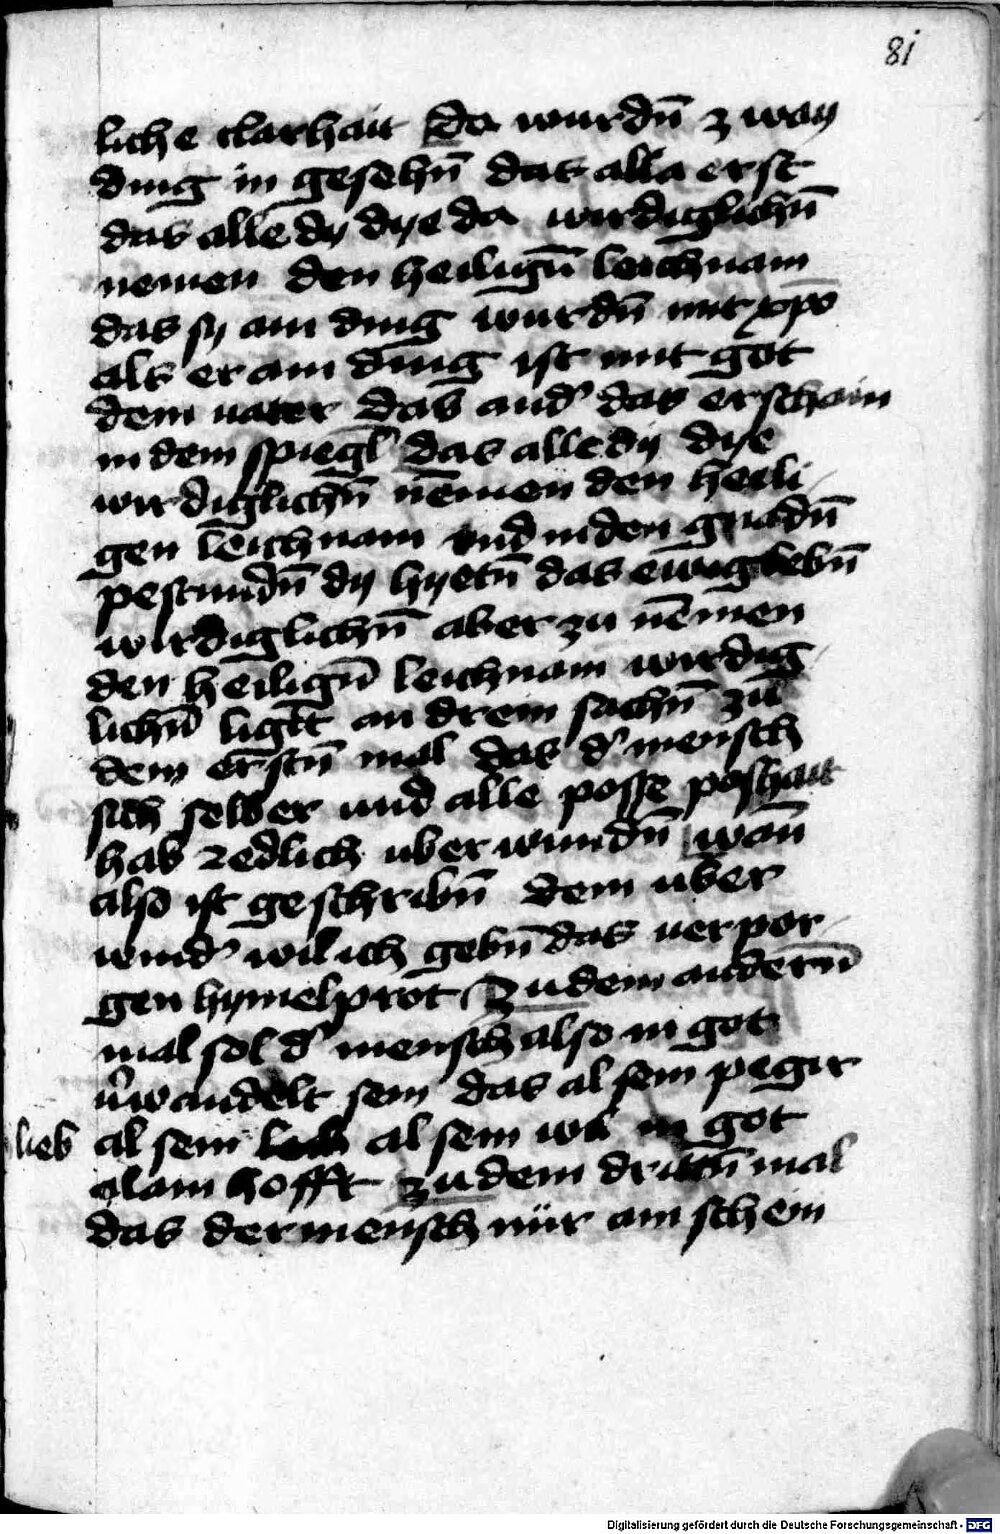 81
liche clarhait Da wurdn̄ zway
ding in gesehn̄ das alla erst
das alle dy dye da wirdiglichn̄
nemen den heilign̄ leichnam
das sy ain ding wurdn̄ mit xp̄o
als er ain ding ist mit got
dem uater das and' das erschain
in dem spiegl das alle dy dye
wirdiglichn̄ nēmen den heili
gen leichnam vnd in den gnadn̄
pestundn̄ dy hyetn̄ das ewig lebn̄
wirdiglichn̄ aber zu nēmen
den heilign̄ leichnam wirdig
lichn̄ ligt an drein sachn̄ zu
dem erstn̄ mal das d' mensch
sich selber und alle posse poshait
hab redlich uber wundn̄ wan̄
also ist geschribn̄ dem uber
wind' wil ich gebn̄ das uerpor
gen hymelprot Zu dem andern̄
mal sol d' mensch also in got
v'wandelt sein das al sein pegir
lieb al sein al sein wil in got
alain hofft zu dem drittn̄ mal
das der mensch nür ain schein
Digitalisierung gefördert durch die Deutsche Forschungsgemeinschaft - DFG